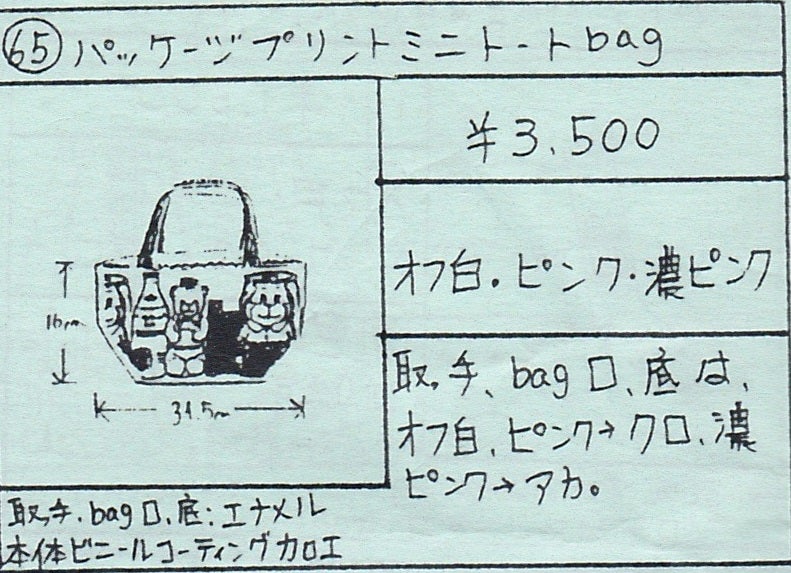 65 パッケージプリントミニトートbag
¥3,500
オフ白・ピンク・濃ピンク
16cm
31.5cm
取手、bag口、底は、
オフ白、ピンク→クロ、濃
ピンク→アカ。
取手、bag口、底:エナメル
本体ビニールコーティング加工